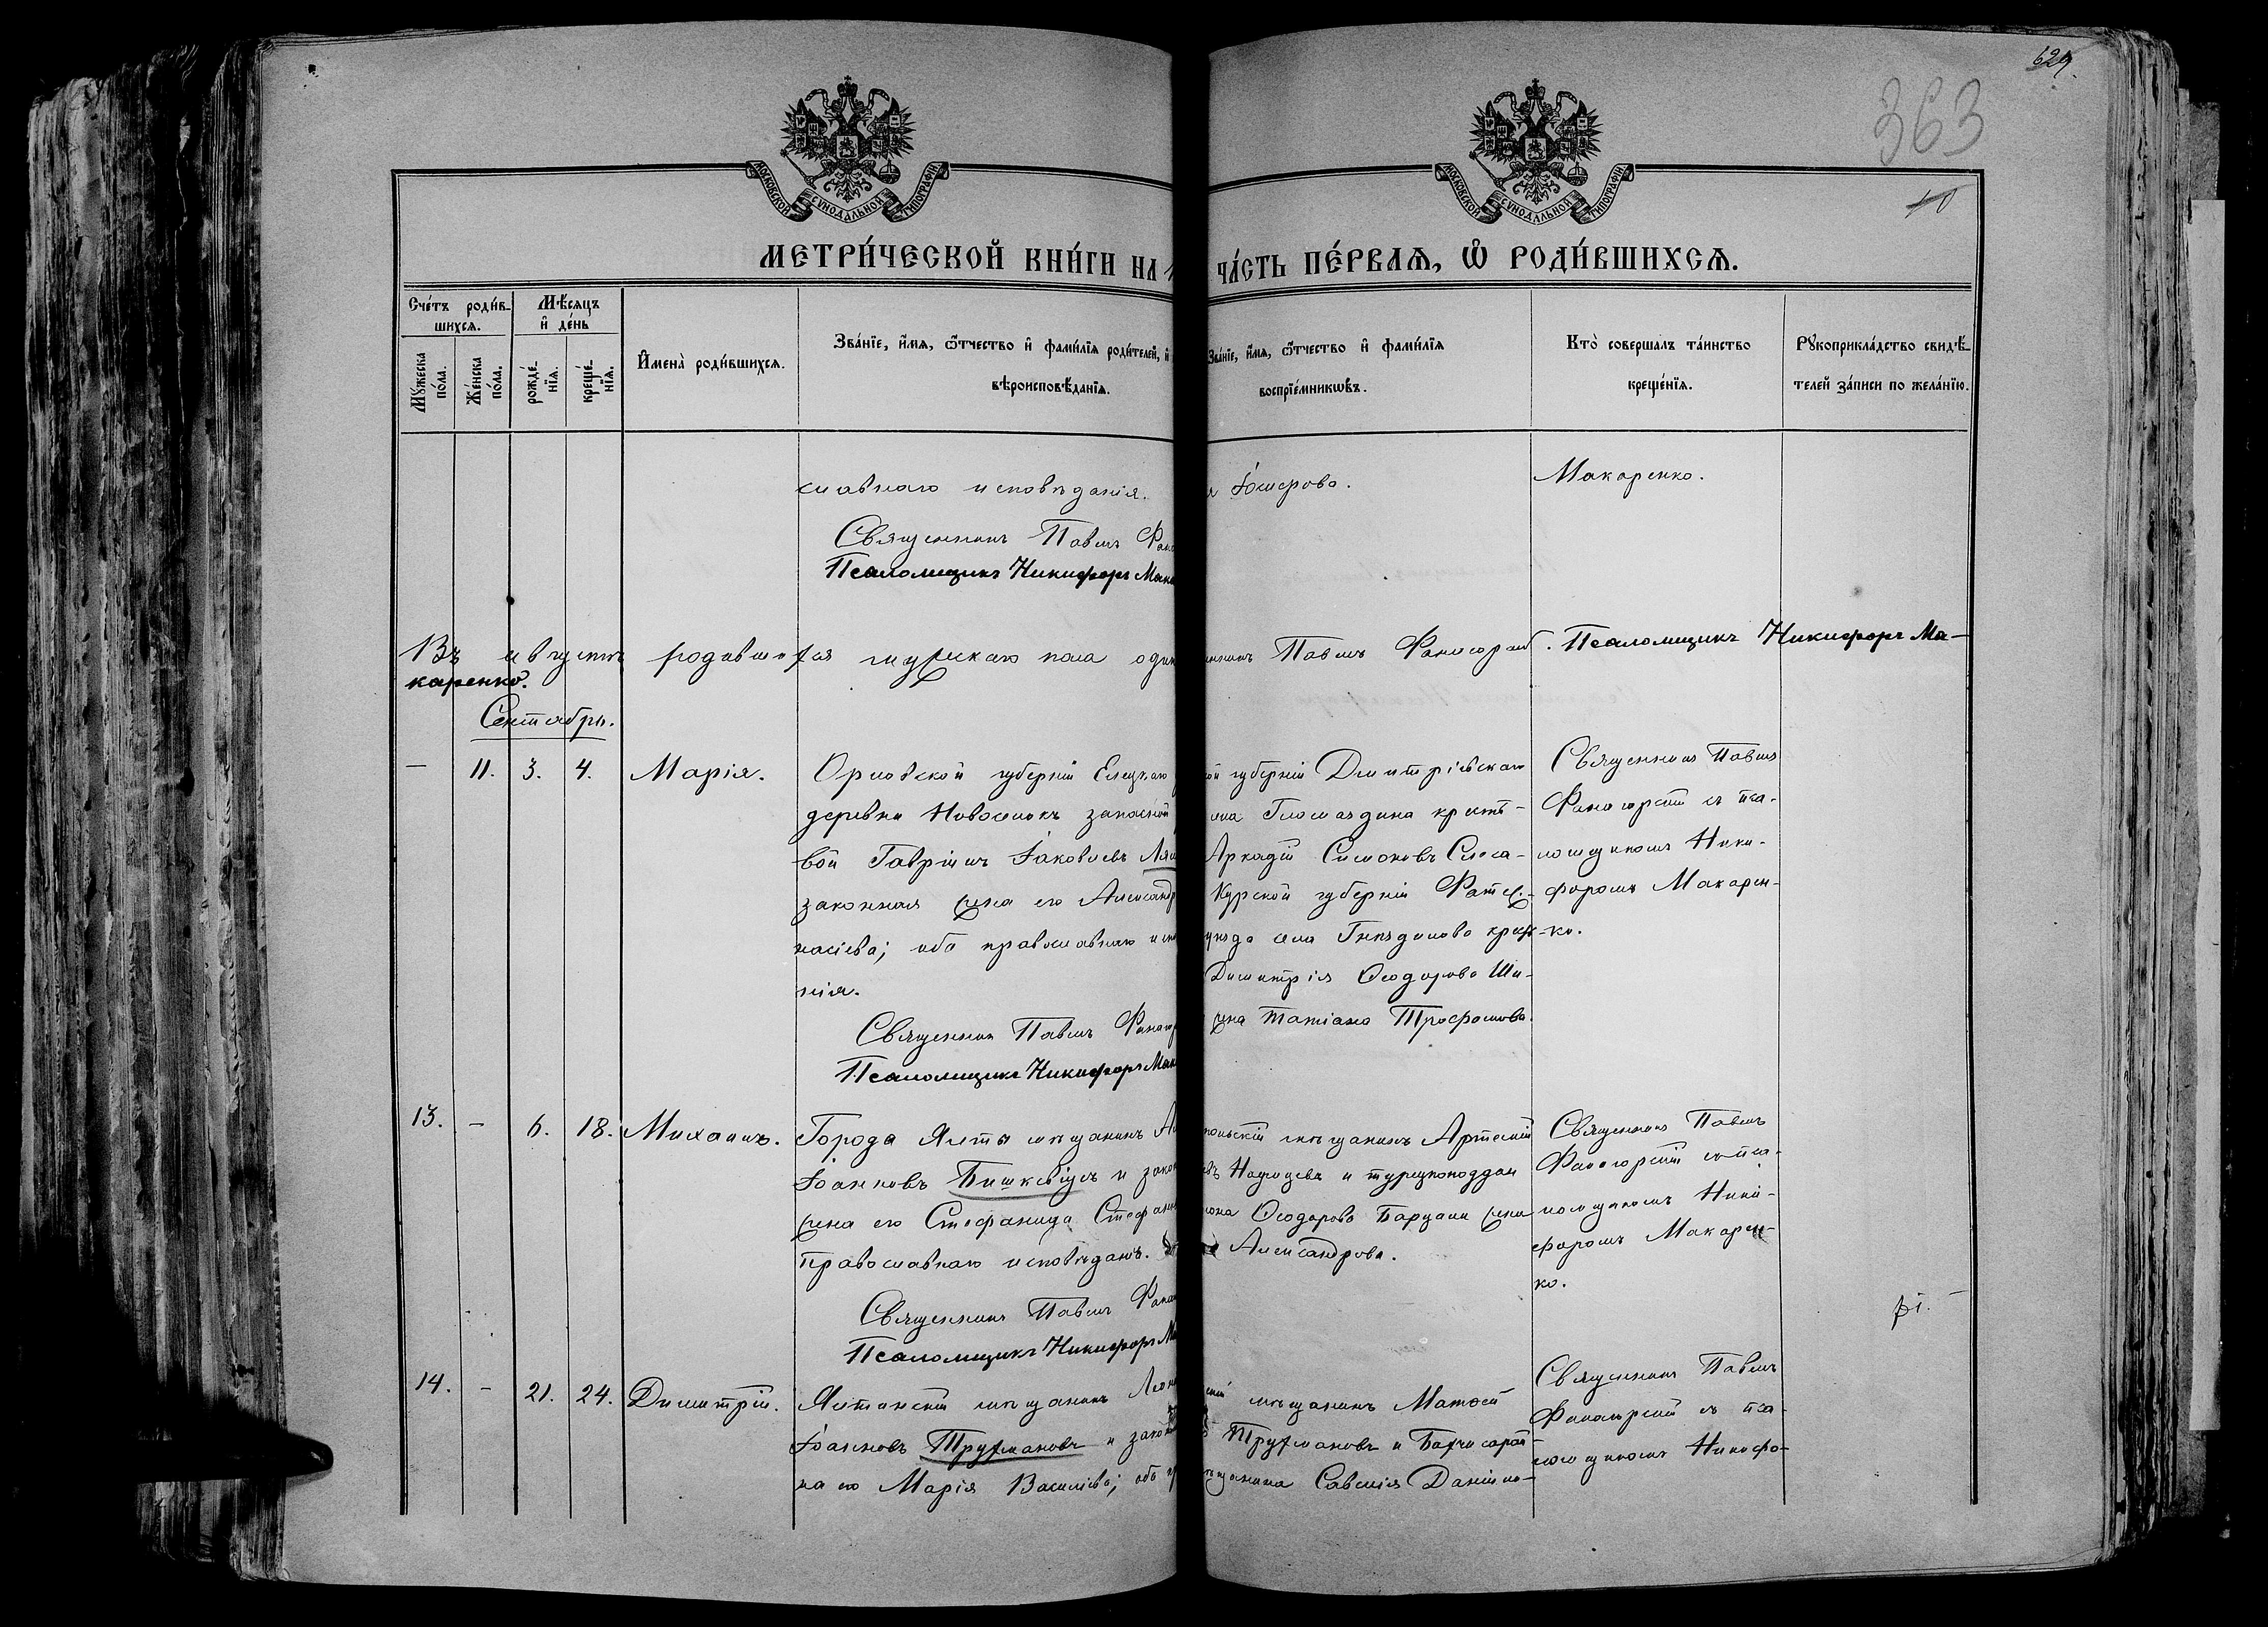 629.
363
10
МОСКОВСКОЙ СѴНОДАЛЬНОЙ ТИПОГРАФІИ
МОСКОВСКОЙ СѴНОДАЛЬНОЙ ТИПОГРАФІИ
МЕТРИ́ЧЕСКОЙ КНИ́ГИ НА 1
ЧА́СТЬ ПЕ́РВАЯ, Ѡ РОДИ́ВШИХСЯ.
Сче́тъ роди́в-
шихся.
Мѣ́сяцъ
и де́нь
Мꙋжеска по́ла.
Же́нска по́ла.
рожде́-
нїя.
креще́-
нїя.
Имена̀ роди́вшихся.
Зва́нїе, и́мя, ѻ́тчество и фами́лїя роди́телей, и
вѣроисповѣ́данїя.
Зва́нїе, и́мя, ѻ́тчество и фами́лїя
воспрїе́мникѡвъ.
Кто̀ соверша́лъ та́инство
креще́нїя.
Рꙋкоприкла́дство свидѣ́-
телей за́писи по жела́нїю.
славнаго исповѣданія.
Макаренко.
Священникъ Павелъ
Псаломщикъ Никифоръ Мак
Въ августѣ родившихся мужскаго пола один
Павелъ Фанагорскій. Псаломщикъ Никифоръ Ма-
каренко.
Сентябрь.
— 11. 3. 4. Марія.
Орловской губерніи Елецкаго
деревни Новоселокъ запасный
вой Гавріилъ Іаковлевъ
законная жена его Александр
насіева; оба православнаго испо
нія.
Священникъ Павелъ Фанагор
Псаломщикъ Никифоръ Мак
ой губерніи Дмитріевскаго
села крестъ-
Аркадій Симоновъ Слеса-
Курской губерніи Фатеж-
уѣзда села Гнѣздилова крес
Димитрія Ѳеодорова Ши-
жена Татіана Трофимова.
Священникъ Павелъ
Фанагорскій съ пса-
ломщикомъ Ники-
форомъ Макарен-
ко.
13. — 6. 18. Михаилъ.
Города Ялты мѣщанинъ
Іоанновъ Бишкевіцъ и закон
жена его Стефанида Стефан
православнаго исповѣданія.
Священникъ Павелъ Фана
Псаломщикъ Никифоръ М
польскій мѣщанинъ Артемій
и турецкоподдан
Ѳеодорова жена
Александрова.
Священникъ Павелъ
Фанагорскій съ пса-
ломщикомъ Ники-
форомъ Макарен-
ко.
14. — 21. 24. Димитрій.
Ялтинскій мѣщанинъ Леон
Іоанновъ Трухмановъ и закон
на его Марія Василіева; оба пр
мѣщанинъ Матѳей
Трухмановъ и Бахчисарай-
мѣщанина Савелія Даніило-
Священникъ Павелъ
Фанагорскій съ пса-
ломщикомъ Никифо-